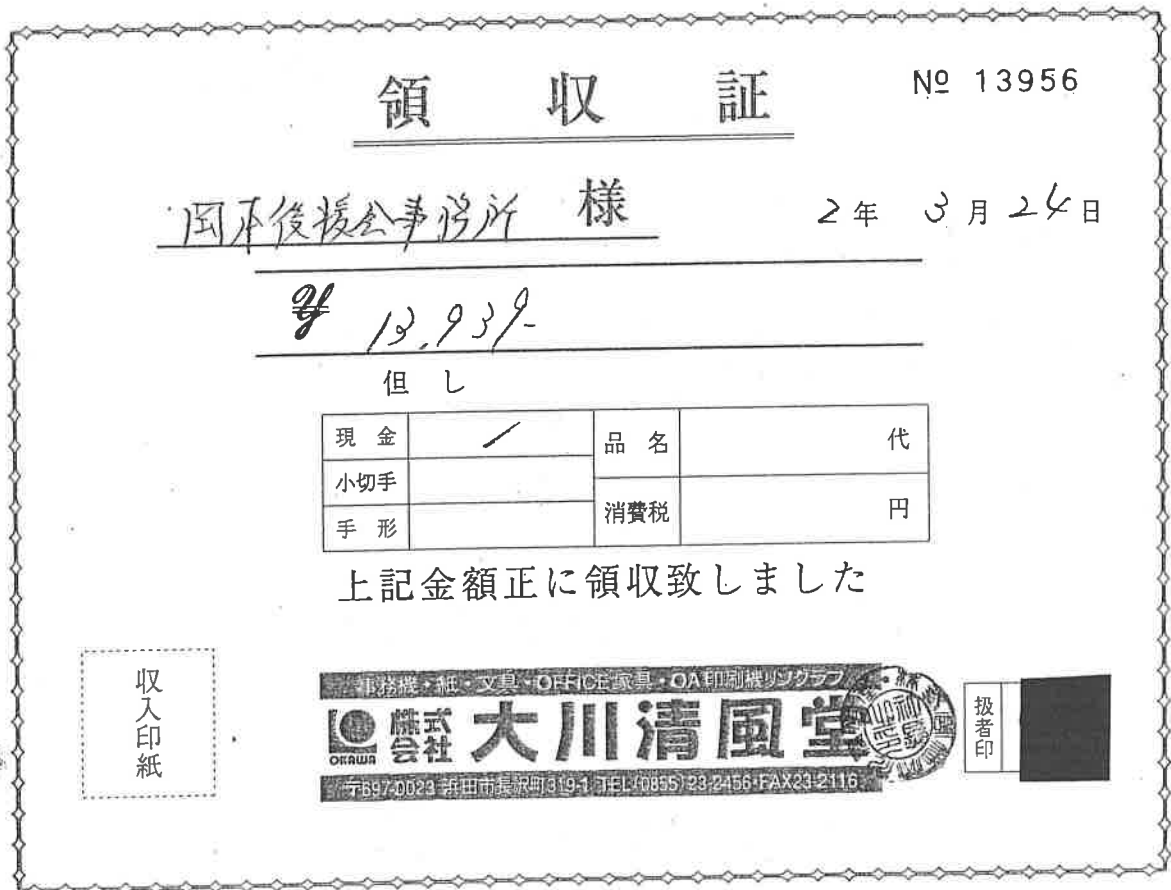 領収証
№ 13956
岡本後援会事務所 様
2年 3月 24日
¥ 13,939-
但し
現金
品名 代
小切手
消費税 円
手形
上記金額正に領収致しました
収入印紙
事務機・紙・文具・OFFICE家具・OA印刷機リソグラフ
OKAWA 株式会社 大川清風堂
〒697-0023 浜田市長沢町319-1 TEL(0855)23-2456・FAX23-2116
扱者印